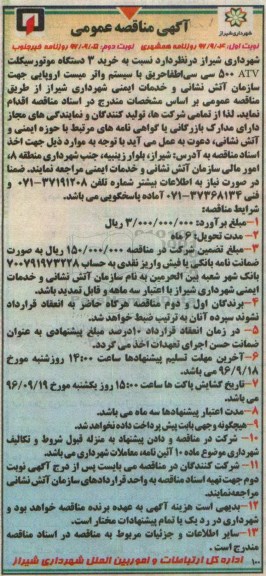 آگهی مناقصه عمومی
شهرداری شیراز
نوبت اول: ۹۶/۹/۰۴ روزنامه همشهری نوبت دوم: ۹۶/۰۹/۰۵ روزنامه خبرجنوب
شهرداری شیراز درنظردارد نسبت به خرید ۳ دستگاه موتورسیکلت
ATV ۵۰۰ سی سی‌اطفاحریق با سیستم واتر میست اروپایی جهت
سازمان آتش نشانی و خدمات ایمنی شهرداری شیراز از طریق
مناقصه عمومی بر اساس مشخصات مندرج در اسناد مناقصه اقدام
نماید، لذا از تمامی شرکت ها، تولید کنندگان و نمایندگی های مجاز
دارای مدارک بازرگانی یا گواهی نامه های مرتبط با حوزه ایمنی و
آتش نشانی، دعوت به عمل می آید با توجه به موارد ذیل جهت اخذ
اسناد مناقصه به آدرس: شیراز، بلوار زینبیه، جنب شهرداری منطقه ۸،
امور مالی سازمان آتش نشانی و خدمات ایمنی مراجعه نمایند. ضمنا
در صورت نیاز به اطلاعات بیشتر شماره تلفن ۳۷۱۹۱۲۰۸-۰۷۱ و
فنی ۳۷۳۶۸۱۳۴-۰۷۱ آماده پاسخگویی می باشد.
شرایط مناقصه:
۱-مبلغ برآورد: ۳/۰۰۰/۰۰۰/۰۰۰ ریال
۲-مدت تحویل: ۶ ماه
۳-مبلغ تضمین شرکت در مناقصه ۱۵۰/۰۰۰/۰۰۰ ریال به صورت
ضمانت نامه بانکی یا فیش واریز نقدی به حساب ۷۰۰۷۹۱۹۷۳۲۲۸
بانک شهر شعبه بین الحرمین به نام سازمان آتش نشانی و خدمات
ایمنی شهرداری شیراز با اعتبار سه ماهه و قابل تمدید باشد.
۴-برندگان اول و دوم مناقصه هرگاه حاضر به انعقاد قرارداد
نشوند سپرده آنان به ترتیب ضبط خواهد شد.
۵- در زمان انعقاد قرارداد ۱۰درصد مبلغ پیشنهادی به عنوان
ضمانت حسن اجرای تعهدات اخذ می گردد.
۶-آخرین مهلت تسلیم پیشنهادها ساعت ۱۴:۰۰ روزشنبه مورخ
۹۶/۹/۱۸ می باشد.
۷-تاریخ گشایش پاکت ها ساعت ۱۵:۰۰ روز یکشنبه مورخ ۹۶/۰۹/۱۹
می باشد.
۸-مدت اعتبار پیشنهادها سه ماه می باشد.
۹-هیچگونه وجهی بابت پیش پرداخت داده نخواهد شد.
۱۰- شرکت در مناقصه و دادن پیشنهاد به منزله قبول شروط و تکالیف
شهرداری موضوع ماده ۱۰ آئین نامه، معاملات شهرداری می باشد.
۱۱- شرکت کنندگان در مناقصه می بایست پس از درج آگهی نوبت
دوم جهت تهیه اسناد مناقصه به واحد قراردادهای سازمان آتش نشانی
مراجعه نمایند.
۱۲-بدیهی است هزینه آگهی به عهده برنده مناقصه خواهد بود و
شهرداری در رد یک یا تمام پیشنهادات مختار است.
۱۳-سایر اطلاعات و جزئیات مربوط به مناقصه در اسناد مناقصه
مندرج است.
۱۰۰ اداره کل ارتباطات و امور بین الملل شهرداری شیراز